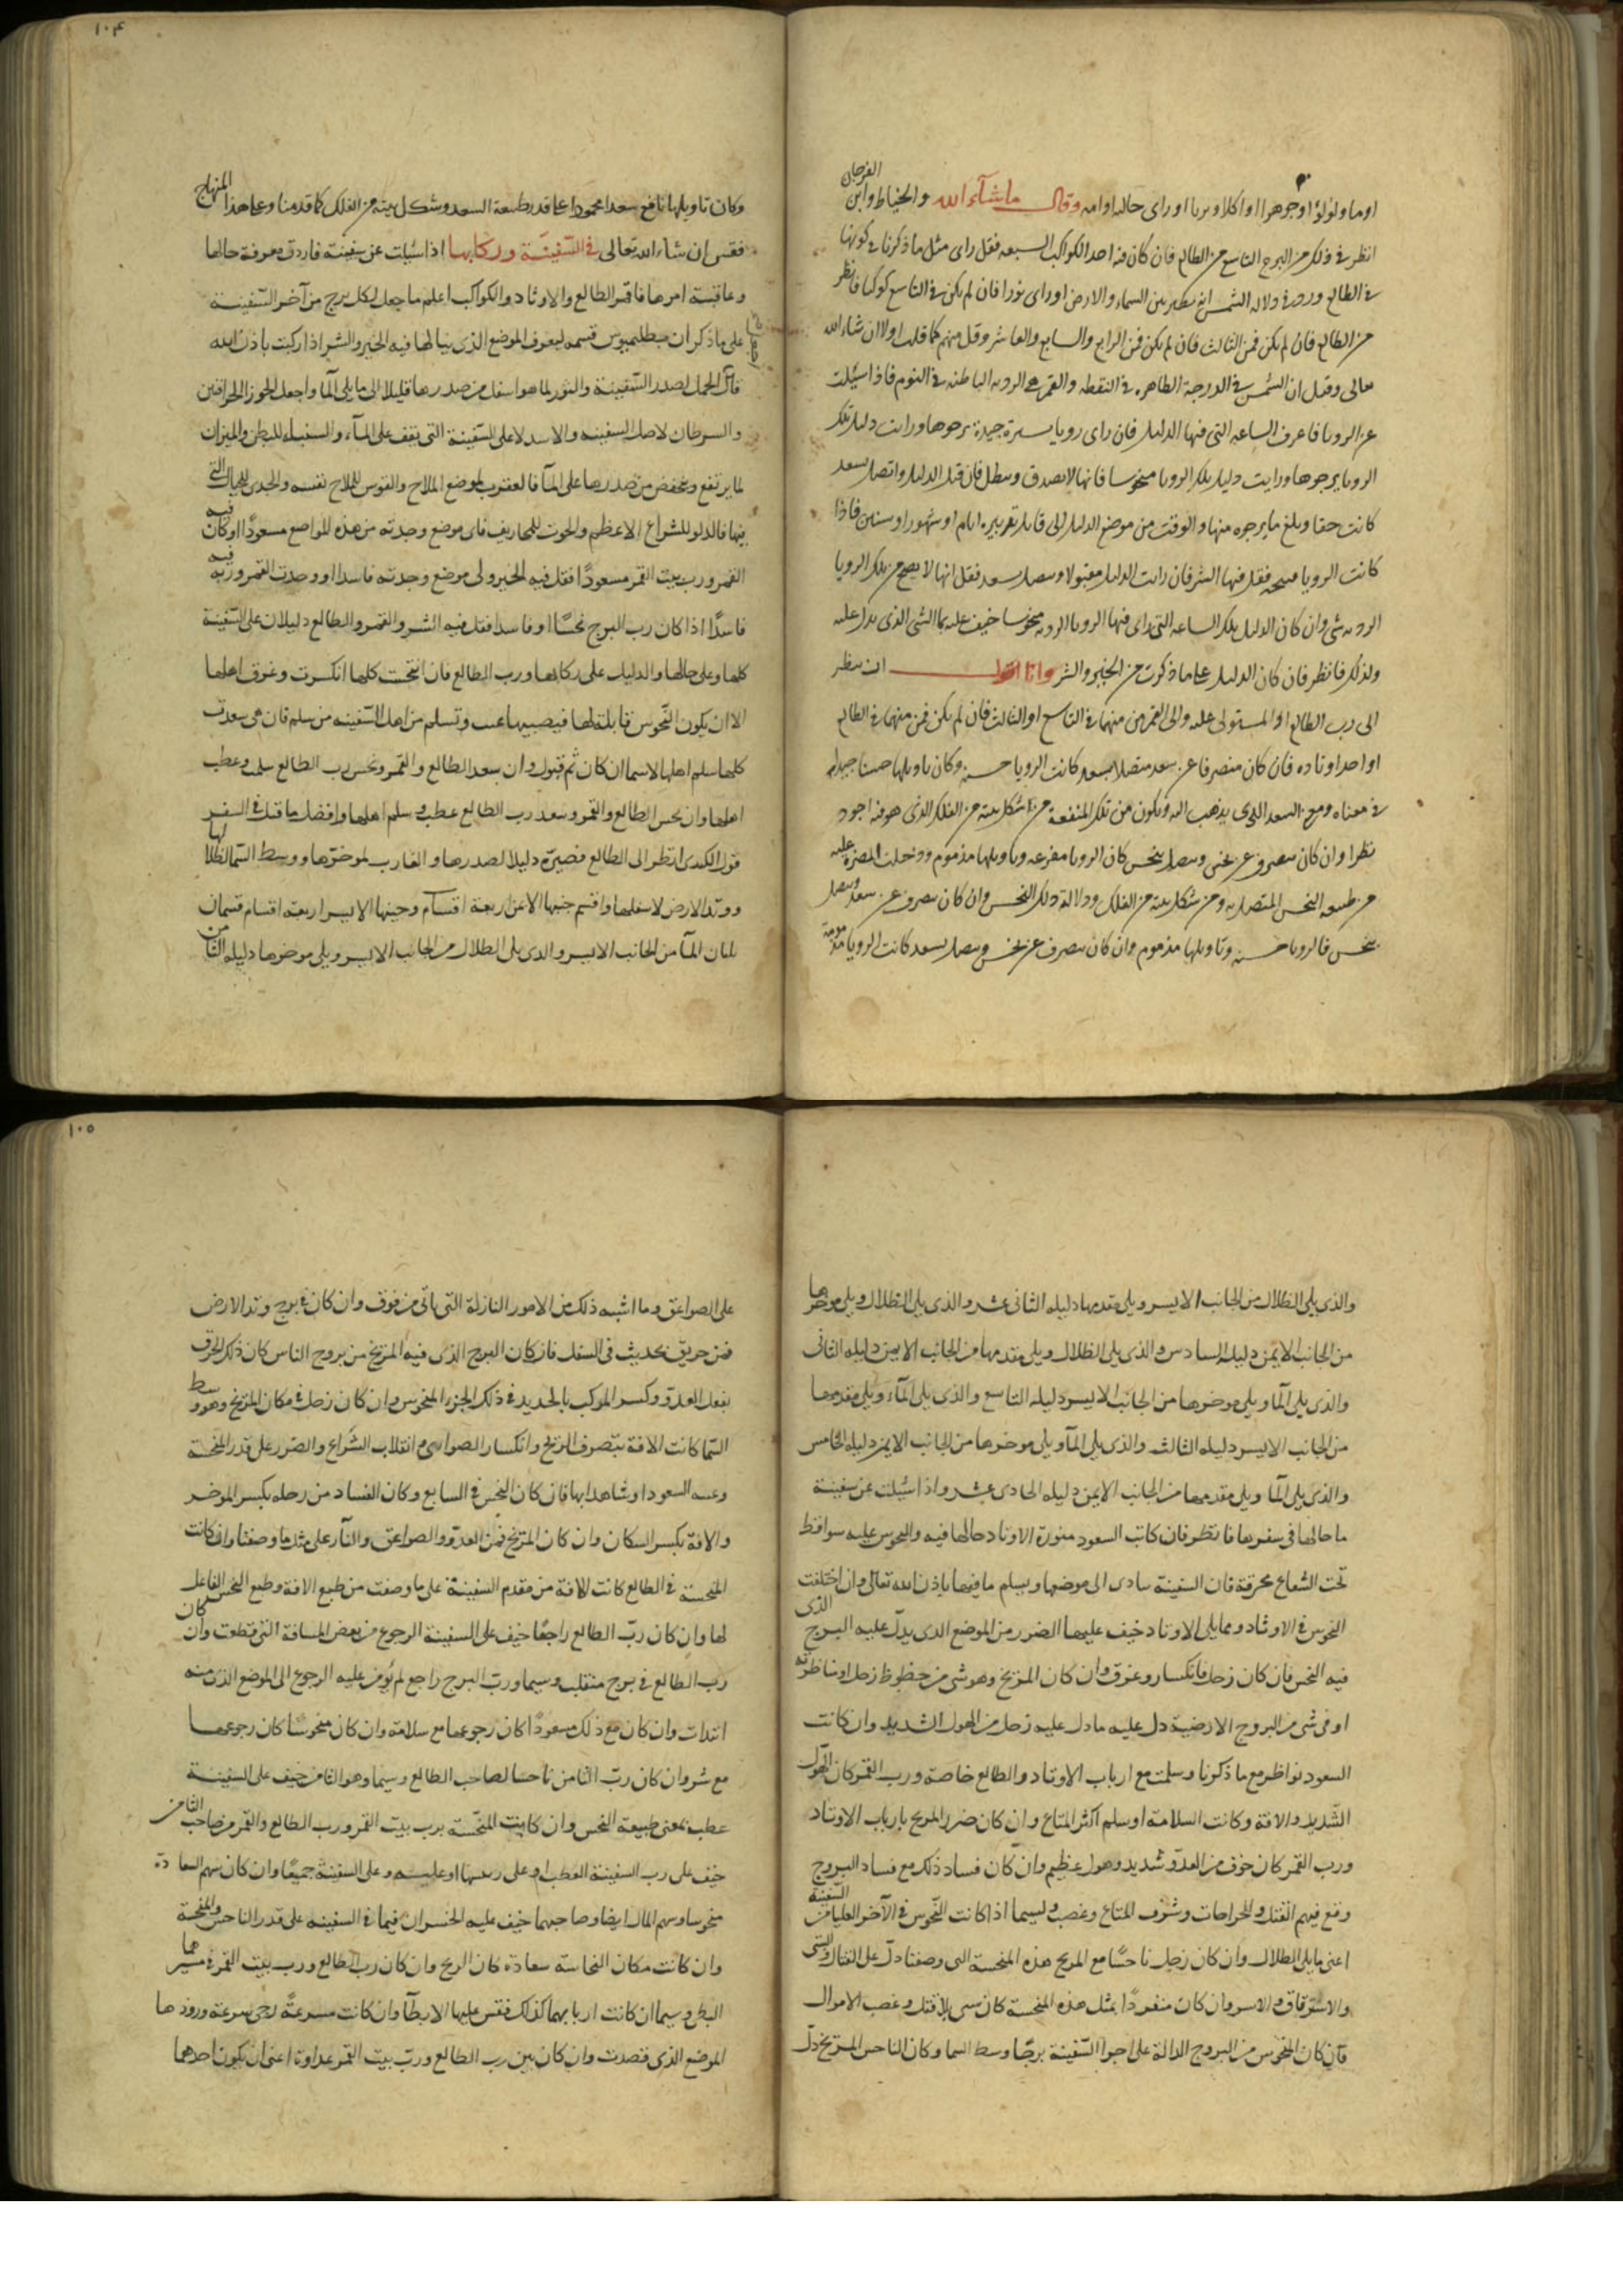 الفرحان
او ماء ولؤلؤا وجوهرا او اكلا وبربا او راى خاله او امه وقال ما شآء الله والخياط وابن
انظر فى ذلك من البرج التاسع من الطالع فان كان فيه احد الكواكب السبعه فقل راى مثل ما ذكرنا فى كونها
فى الطالع ورد فى دلاله الشمس انه يطير بين السماء والارض او راى نورا فان لم يكن فى التاسع كوكبا فانظر
من الطالع فان لم يكن فمن الثالث فان لم يكن فمن الرابع والسابع والعاشر وقل منهم كما قلت اولا ان شاء الله
تعالى وقيل ان الشمس فى الدرجة الظاهره فى النقطه والقمر هى الرويه الباطنه فى النوم فاذا سئلت
عن الرويا فاعرف الساعه التى فيها الدليل فان راى رويا سرة جيدة يرجوها ورايت دليل تلك
الرويا يرجوها ورايت دليل تلك الرويا منحوسا فانها لا تصدق وتبطل فان قبل الدليل واتصل بسعد
كانت حقا وبلغ ما يرجوه منها والوقت من موضع الدليل الى قابل تدبيره ايام او شهور او سنين فاذا
كانت الرويا قبيحه فقل فيها الشر فان رايت الدليل مقبولا ومتصل بسعد فقل انها لا يصح من تلك الرويا
الرديه شى وان كان الدليل تلك الساعه التى راى فيها الرويا الرديه منحوسا خيف عليه مما الشى الذى يدل عليه
ولذلك فانظر فان كان الدليل على ما ذكرت من الخير والشر وانا اقول ان ينظر
الى رب الطالع او المستولى عليه والى القمر من منهما فى التاسع او الثالث فان لم يكن فمن منهما فى الطالع
او احد اوتاده فان كان منصرفا عن سعد متصلا بسعد كانت الرويا حسنه وكان تاويلها حسنا جيدا
فى معناه ومن السعد الذى يذهب اليه وتكون من تلك المنفعة من شكل بيته من الفلك الذى هو فيه اجود
نظرا وان كان ينصرف عن نحس ويتصل بنحس كان الرويا مفزعه وتاويلها مذموم ودخلت المضرة عليه
من طبيعه النحس المتصل به ومن شكل بيته من الفلك ودلالة ذلك النحس وان كان ينصرف عن سعد ويتصل
بنحس فالرويا حسنه وتاويلها مذموم وان كان ينصرف عن نحس ويتصل بسعد كانت الرويا مذمومة
١٠٤
وكان تاويلها نافع سعدا محمودا على قدر طبيعة السعد وشكل بيته من الفلك كما قدمنا وعلى هذا المنهاج
فقس ان شاء الله تعالى فى السّفينة وركابها اذا سئلت عن سفينة فاردت معرفة حالها
وعاقبة امرها فاقم الطالع والاوتاد والكواكب اعلم ما جعل لكل برج من آخر السّفينة
على ما ذكر ان بطلميوس قسمه ليعرف الموضع الذى ينالها فيه الخير والشر اذا ركبت باذن الله
فان الحمل لصدر السّفينة والثور لما هو اسفل من صدرها قليلا الى ما يلى المآ واجعل الجوزا
والسرطان لاصل السفينه والاسد لاعلى السّفينة التى يقف على المآء والسنبله للبطن والميزان
لما يرتفع وينخفض من صدرها على المآ فالعقرب لموضع الملاح والقوس للملاح نفسه والجدى للحبال التى
فيها فالدلو للشراع الاعظم والحوت للمجاريف فاى موضع وجدته من هذه المواضع مسعودا او كان فيه
القمر ورب بيت القمر مسعودا فقل فيه الخير ولى موضع وجدته فاسدا او وجدت القمر وربه فيه
فاسدًا اذا كان رب البرج نحسًا او فاسدا فقل فيه الشر والقمر والطالع دليلان على السّفينة
كلها وعلى حالها والدليل على ركابها رب الطالع فان انتحست كلها انكسرت وغرق اهلها
الا ان يكون النّحوس قابلة لها فيصيبها عيب وتسلم من اهل السّفينه من سلم فان هى سعدت
كلها سلم اهلها لاسيما ان كان ثم قبول وان سعد الطالع والقمر ونحس رب الطالع سلمت وعطب
اهلها وان نحس الطالع والقمر وسعد رب الطالع عطبت وسلم اهلها وافضل ما قيل فى السفر
قول الكندى انظر الى الطالع فصيّره دليلا لصدرها والغارب لموخرها ووسط السّما لظلالها
ووتد الارض لاسفلها واقسم جنبها الايمن اربعة اقسام وجنبها الايسر اربعه اقسام قسمان
يليان المآ من الجانب الايسر والذى يلى الظلال من الجانب الايسر ويلى موخرها دليله الثامن
والذى يلى الظلال من الجانب الايسر ويلى مقدمها دليله الثانى عشر والذى يلى الظلال ويلى موخرها
من الجانب الايمن دليله السادس والذى يلى الظلال ويلى مقدمها من الجانب الايمن دليله الثانى
والذى يلى المآ ويلى موخرها من الجانب الايسر دليله التاسع والذى يلى المآء ويلى مقدمها
من الجانب الايسر دليله الثالث والذى يلى المآ ويلى موخرها من الجانب الايمن دليله الخامس
والذى يلى المآ ويلى مقدمها من الجانب الايمن دليله الحادى عشر واذا سئلت عن سفينة
ما حالها فى سفرها فانظر فان كانت السعود منورة الاوتاد حالها فيه والنحوس عليه سواقط
تحت الشعاع محرقة فان السفينة تنادى الى موضعها ويسلم ما فيها باذن الله تعالى وان اختلفت
النحوس فى الاوتاد ومما يلى الاوتاد خيف عليها الضرر من الموضع الذى يدلّ عليه البرج الذى
فيه النحس فان كان زحل فانكسار وغرق وان كان المريخ وهو شى من حظوظ زحل او ناظرته
او فى شى من البروج الارضية دل عليه ما دل عليه زحل من الهول الشديد وان كانت
السعود نواظر مع ما ذكرنا وسلمت مع ارباب الاوتاد والطالع خاصة ورب القمر كان الهول
الشّديد والافة وكانت السلامة او سلم اكثر المتاع وان كان ضرر المريخ بارباب الاوتاد
ورب القمر كان خوف من العدوّ شديد وهول عظيم وان كان فساد ذلك مع فساد البروج
وقع فيهم القتل والجراحات وسُرق المتاع وغصب ولسيما اذا كانت النّحوس فى الآخر العليا من السّفينة
اعنى ما يلى الظلال وان كان زحل ناحسًا مع المريخ هذه المنحسة التى وصفنا دلّ على القتال والسبى
والاسترقاق والاسر وان كان منفردًا بمثل هذه المنحسة كان سبى بلا قتل وغصب الاموال
فان كان المنحوس من البروج الدالة على اجزا السّفينة برجًا وسط السما وكان الناحس المريخ دلّ
١٠٥
على الصواعق وما اشبه ذلك من الامور النازلة التى تاتى من فوق وان كان فى برج وتد الارض
فمن حريق يحدث فى السفل فان كان البرج الذى فيه المريخ من بروج الناس كان ذلك الحرق
بفعل العدوّ وكسر المركب بالحديد فى ذلك الجزء المنحوس وان كان زحل فى مكان المريخ وهو وسط
السّما كانت الافة بتصرف الريح وانكسار الصوارى وانقلاب الشّراع والضرر على قدر المنحسة
وغيبه السعود او شاهدتها فان كان النحس فى السابع وكان الفساد من زحل بكسر الموخر
والافة بكسر السكان وان كان المريخ فمن العدوّ والصواعق والنآر على مثل ما وصفنا وان كانت
المنحسة فى الطالع كانت الافة من مقدم السفينة على ما وصفت من طبع الافة وطبع النحس الفاعل
لها وان كان ربّ الطالع راجعًا خيف على السفينة الرجوع من بعض المسافة التى قطعت وان كان
رب الطالع فى برج منقلب وسيما ورب البرج راجع لم يُومن عليه الرجوع الى الموضع الذى منه
ابتدات وان كان مع ذلك مسعودًا كان رجوعها مع سلامة وان كان منحوسًا كان رجوعها
مع شر وان كان ربّ الثامن ناحسا لصاحب الطالع وسيما وهو الثامن خيف على السفينة
عطب بمعنى طبيعة النحس وان كانت المنحّسة برب بيت القمر ورب الطالع والقمر من صاحب الثامن
خيف على رب السفينة العطب او على ربعها او عليه وعلى السفينة جميعًا وان كان سهم السعادة
منحوسا وسهم المال ايضا وصاحبهما خيف عليه الخسران فيما فى السفينه على قدر الناحس والمنحسة
وان كانت مكان النحاسة سعادة كان الربح وان كان رب الطالع ورب بيت القمر فى مسيرهما
البطى وسيما ان كانت اربابهما كذلك فقس عليها الابطآ وان كانت مسرعةً رجى سرعة ورودها
الموضع الذى قصدت وان كان بين رب الطالع وربّ بيت القمر عداوة اعنى ان يكون احدهما